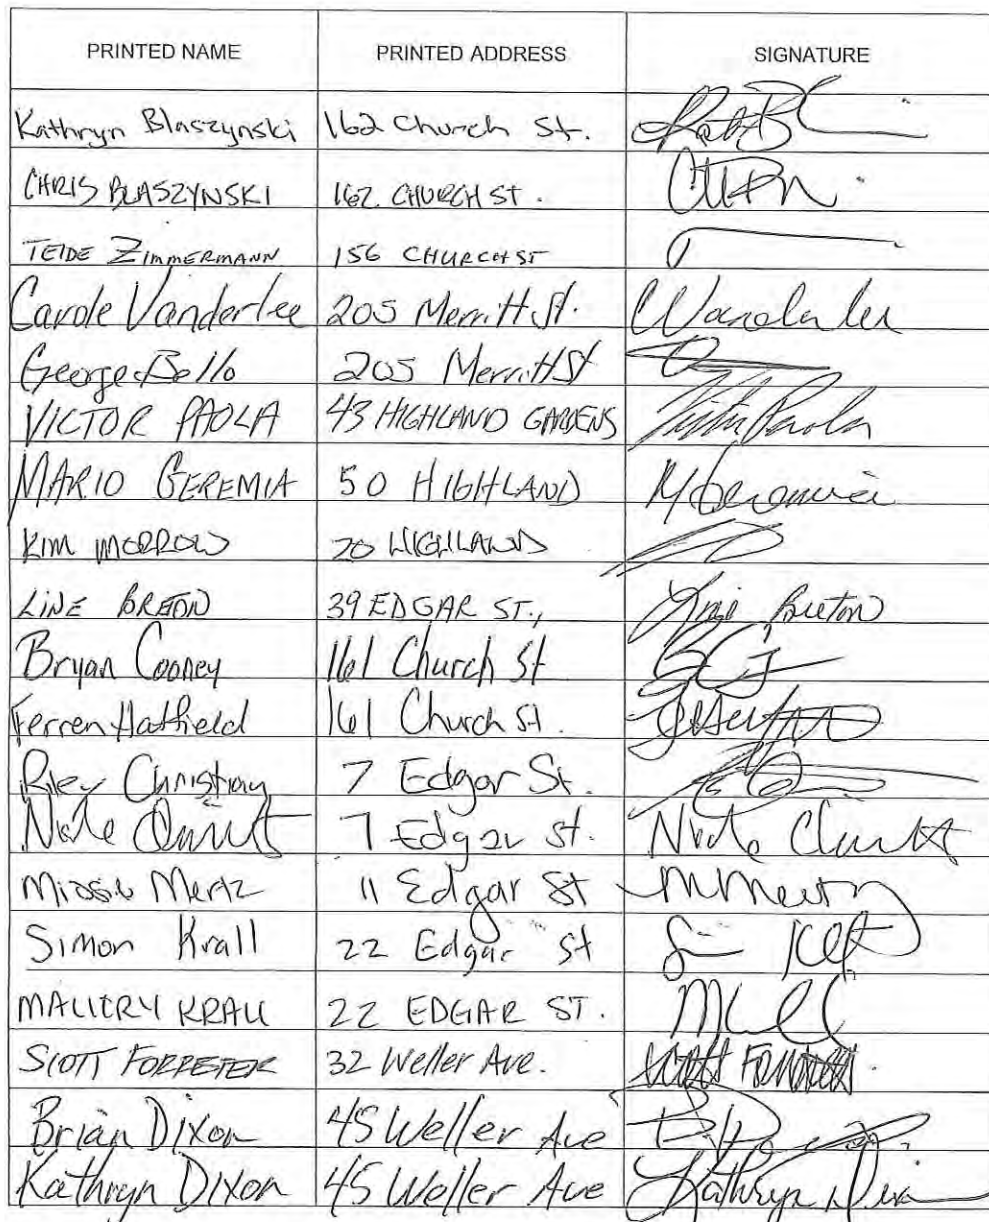 PRINTED NAME PRINTED ADDRESS SIGNATURE
Kathryn Blaszynski 162 Church St.
CHRIS BLASZYNSKI 162 CHURCH ST.
TEIDE ZIMMERMANN 156 CHURCH ST
Carole Vanderlee 205 Merritt St.
George Bello 205 Merritt St
VICTOR PAOLA 43 HIGHLAND GARDENS Victor Paola
MARIO GEREMIA 50 HIGHLAND MGeremia
KIM MORROW 20 HIGHLAND
LINE BRETON 39 EDGAR ST., Line Breton
Bryan Cooney 161 Church St
Ferren Hatfield 161 Church St.
Riley Christian 7 Edgar St.
7 Edgar St.
Missie Mertz 11 Edgar St MMertz
Simon Krall 22 Edgar St
MALLORY KRALL 22 EDGAR ST.
SCOTT 32 Weller Ave.
Brian Dixon 45 Weller Ave
Kathryn Dixon 45 Weller Ave Kathryn Dixon